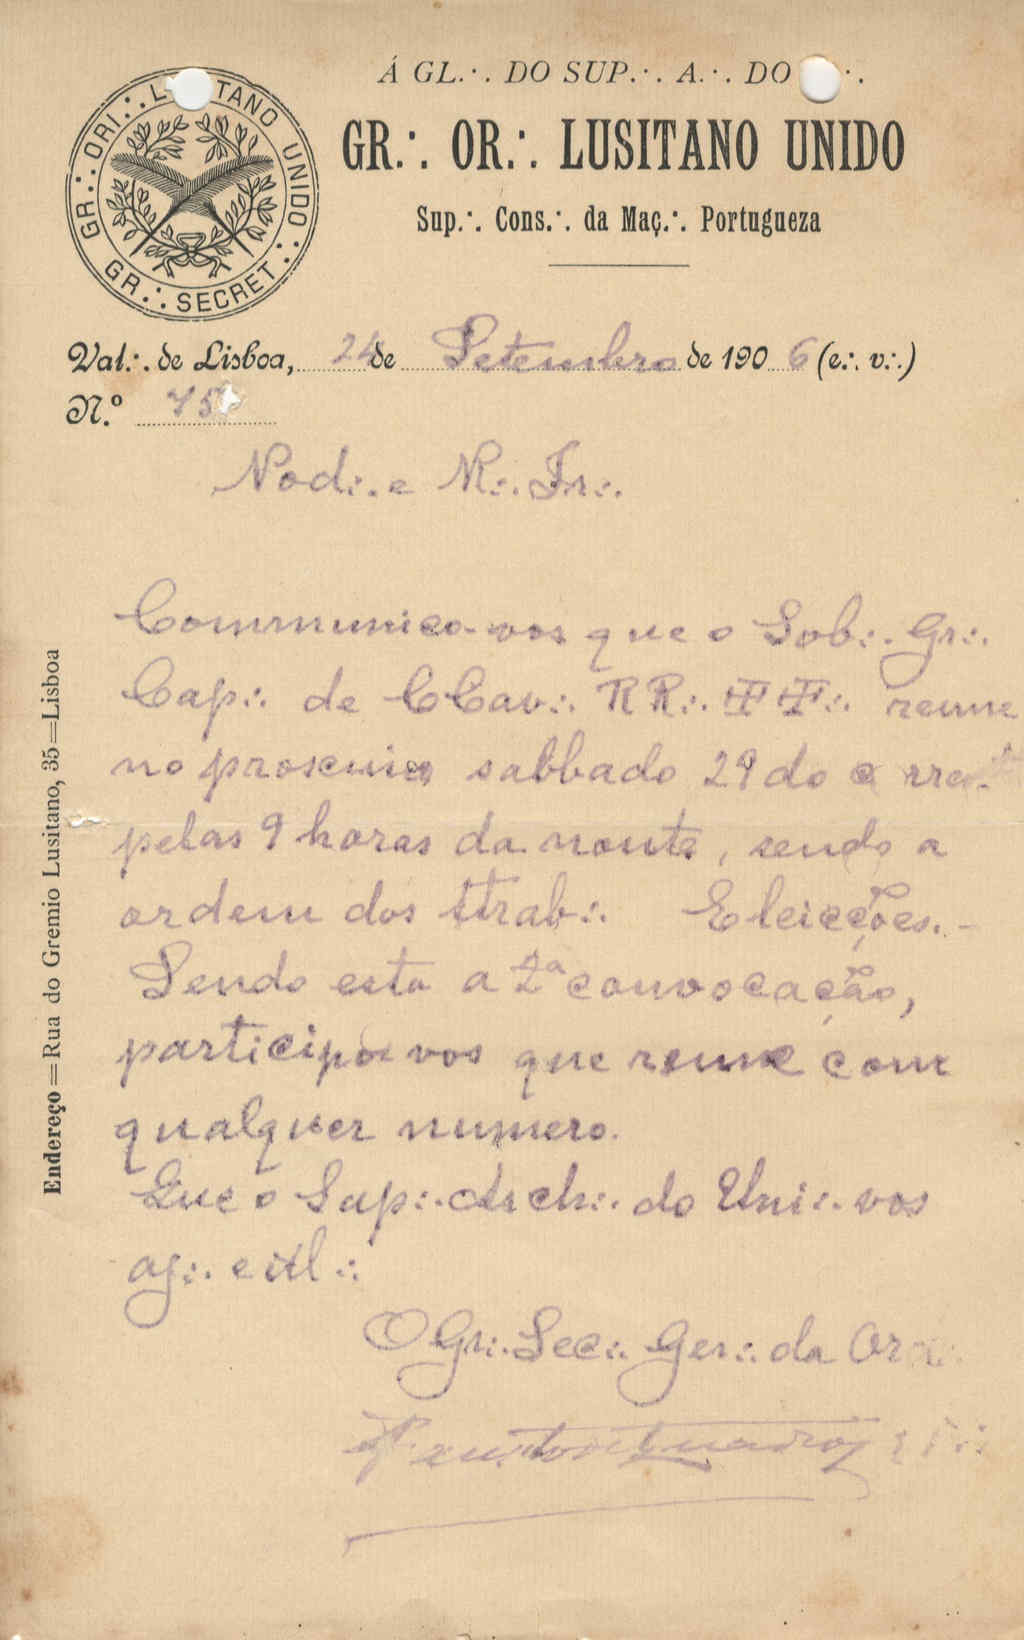 Á GL.·. DO SUP.·. A.·. DO .·.
GR.·. OR.·. LUSITANO UNIDO
Sup.·. Cons.·. da Maç.·. Portugueza
GR.·. ORI.·. L TANO UNIDO.·.
GR.·. SECRET.·.
Val.·. de Lisboa, 24 de Setembro de 1906 (e.·. v.·.)
N.º 75
Pod.·. e R.·. Ir.·.
Communico-vos que o Sob.·. Gr.·.
Cap.·. de CCav.·. RR.·. ✠✠.·. reune
no proximo sabbado 29 do
pelas 9 horas da noute, sendo a
ordem dos ttrab.·. Eleicções.-
Sendo esta a 2ª convocação,
participo vos que reune com
qualquer numero.
Que o Sup.·. Arch.·. do Uni.·. vos
aj.·. e ill.·.
O Gr.·. Sec.·. Ger.·. da Or
Endereço=Rua do Gremio Lusitano, 35=Lisboa